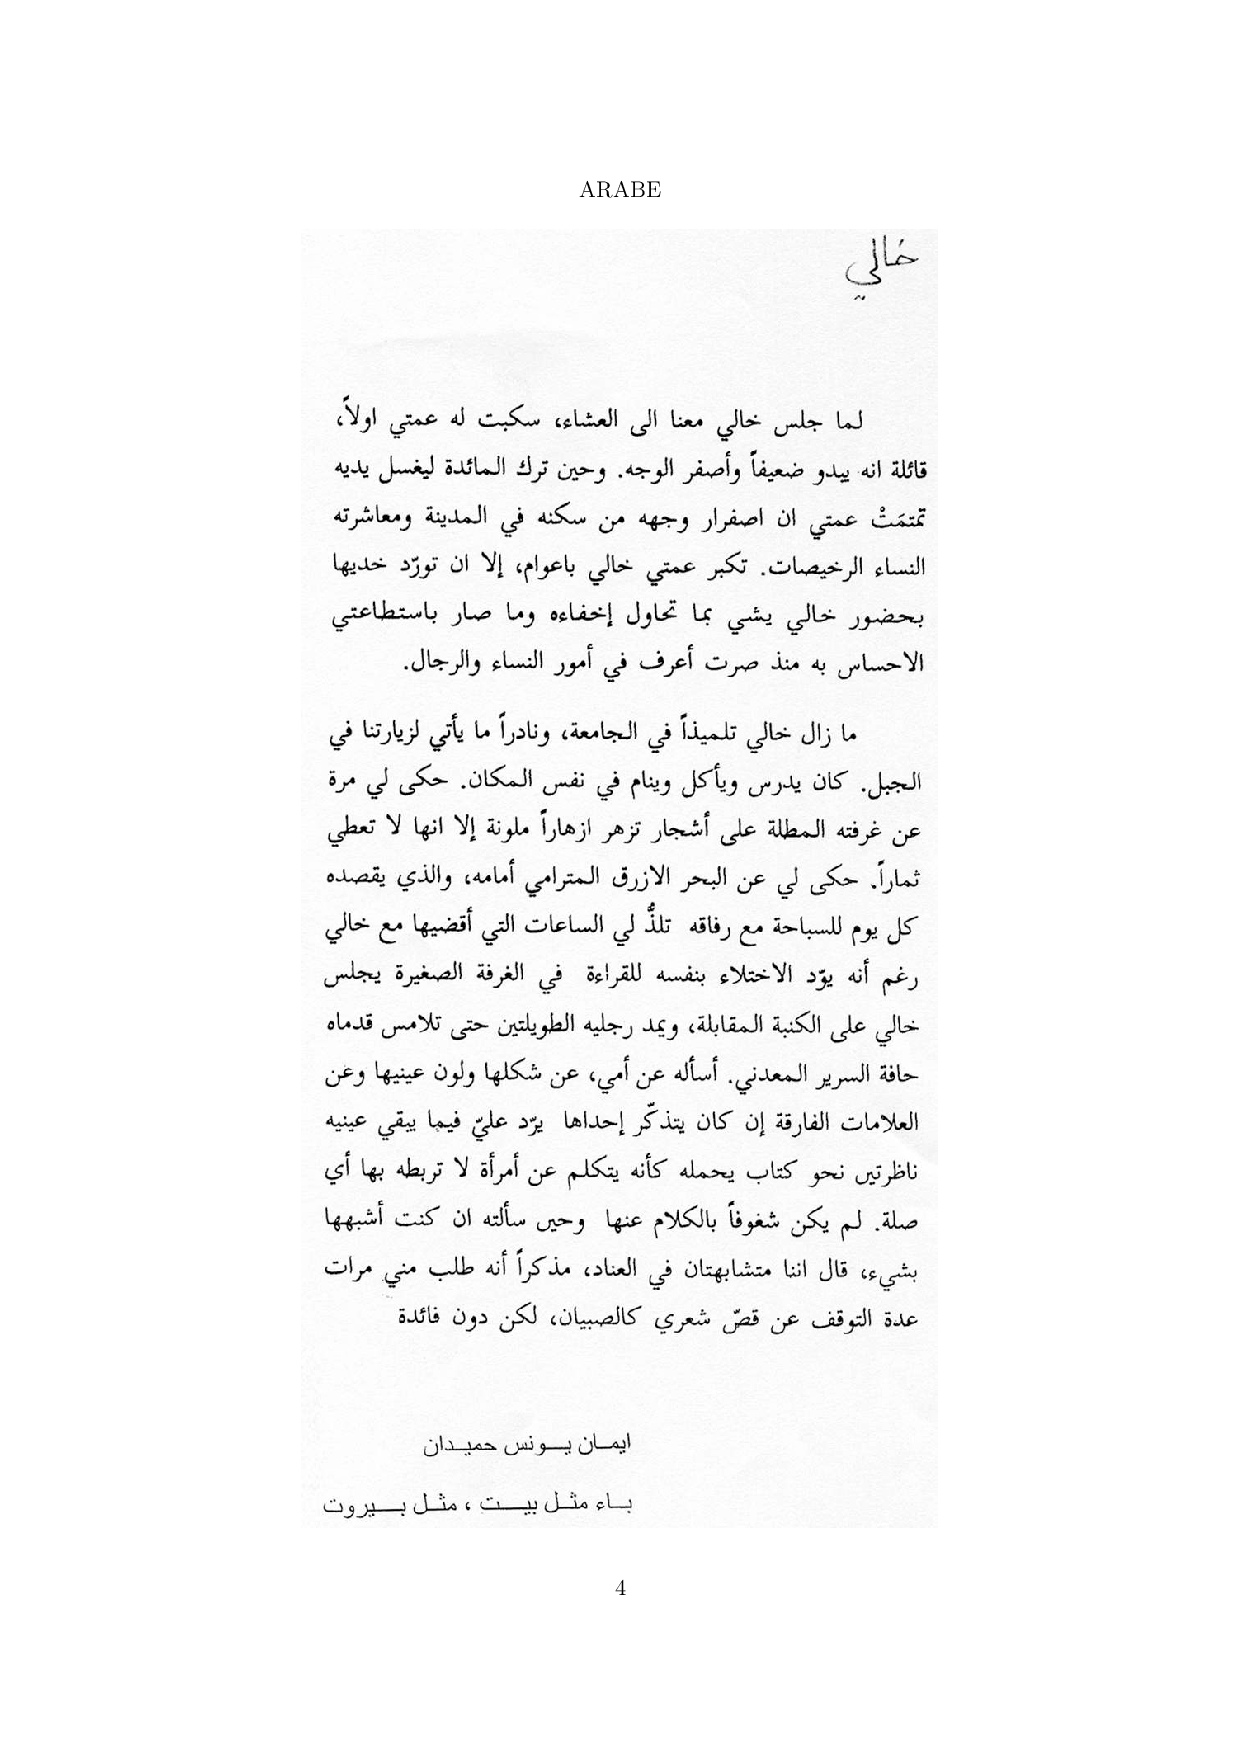 ARABE
خالي
لما جلس خالي معنا الى العشاء، سكبت له عمتي اولاً،
قائلة انه يبدو ضعيفاً وأصفر الوجه. وحين ترك المائدة ليغسل يديه
تمتمَتْ عمتي ان اصفرار وجهه من سكنه في المدينة ومعاشرته
النساء الرخيصات. تكبر عمتي خالي باعوام، إلا ان تورّد خديها
بحضور خالي يشي بما تحاول إخفاءه وما صار باستطاعتي
الاحساس به منذ صرت أعرف في أمور النساء والرجال.
ما زال خالي تلميذاً في الجامعة، ونادراً ما يأتي لزيارتنا في
الجبل. كان يدرس ويأكل وينام في نفس المكان. حكى لي مرة
عن غرفته المطلة على أشجار تزهر ازهاراً ملونة إلا انها لا تعطي
ثماراً. حكى لي عن البحر الازرق المترامي أمامه، والذي يقصده
كل يوم للسباحة مع رفاقه تلذُّ لي الساعات التي أقضيها مع خالي
رغم أنه يوّد الاختلاء بنفسه للقراءة في الغرفة الصغيرة يجلس
خالي على الكنبة المقابلة، ويمد رجليه الطويلتين حتى تلامس قدماه
حافة السرير المعدني. أسأله عن أمي، عن شكلها ولون عينيها وعن
العلامات الفارقة إن كان يتذكّر إحداها يرّد عليّ فيما يبقي عينيه
ناظرتين نحو كتاب يحمله كأنه يتكلم عن أمرأة لا تربطه بها أي
صلة. لم يكن شغوفاً بالكلام عنها وحين سألته ان كنت أشبهها
بشيء، قال اننا متشابهتان في العناد، مذكراً أنه طلب مني مرات
عدة التوقف عن قصّ شعري كالصبيان، لكن دون فائدة
ايمان يونس حميدان
باء مثل بيت ، مثل بيروت
4